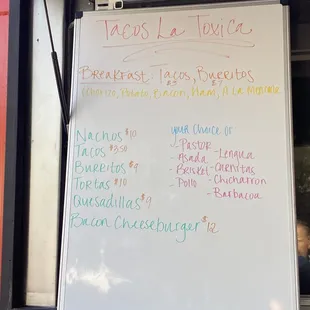 Tacos La Toxica
Breakfast Tacos, Burritos
Chorizo, Potato, Bacon, Ham, A La Mexicana
Nachos $10
Tacos $3.50
Burritos $9
Tortas $10
Quesadillas $9
Bacon Cheeseburger $12
your Choice of
-Pastor
-Asada
-Brisket
-Pollo
-Lengua
-Carnitas
-Chicharron
-Barbacoa